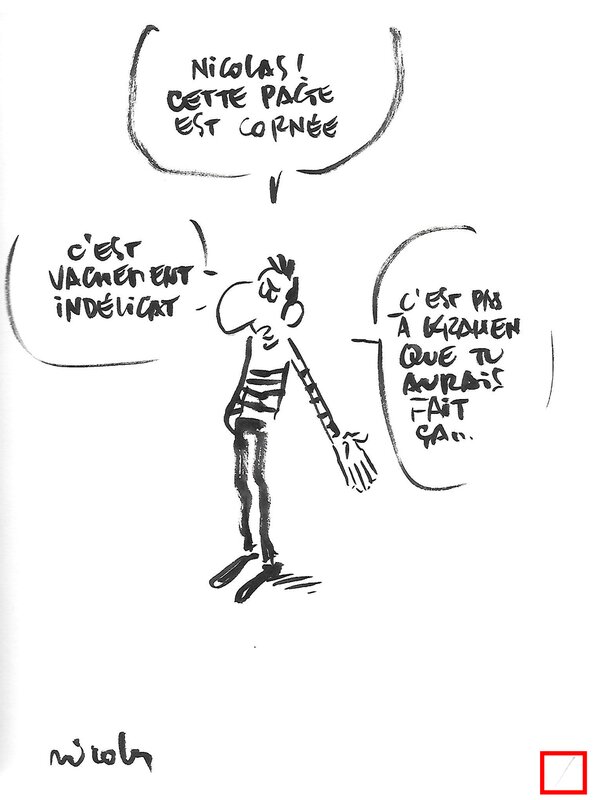 NICOLAS!
CETTE PAGE
EST CORNÉE
C'EST
VACHEMENT
INDÉLICAT
C'EST PAS
À
QUE TU
AURAIS
FAIT
ÇA...
nicoby